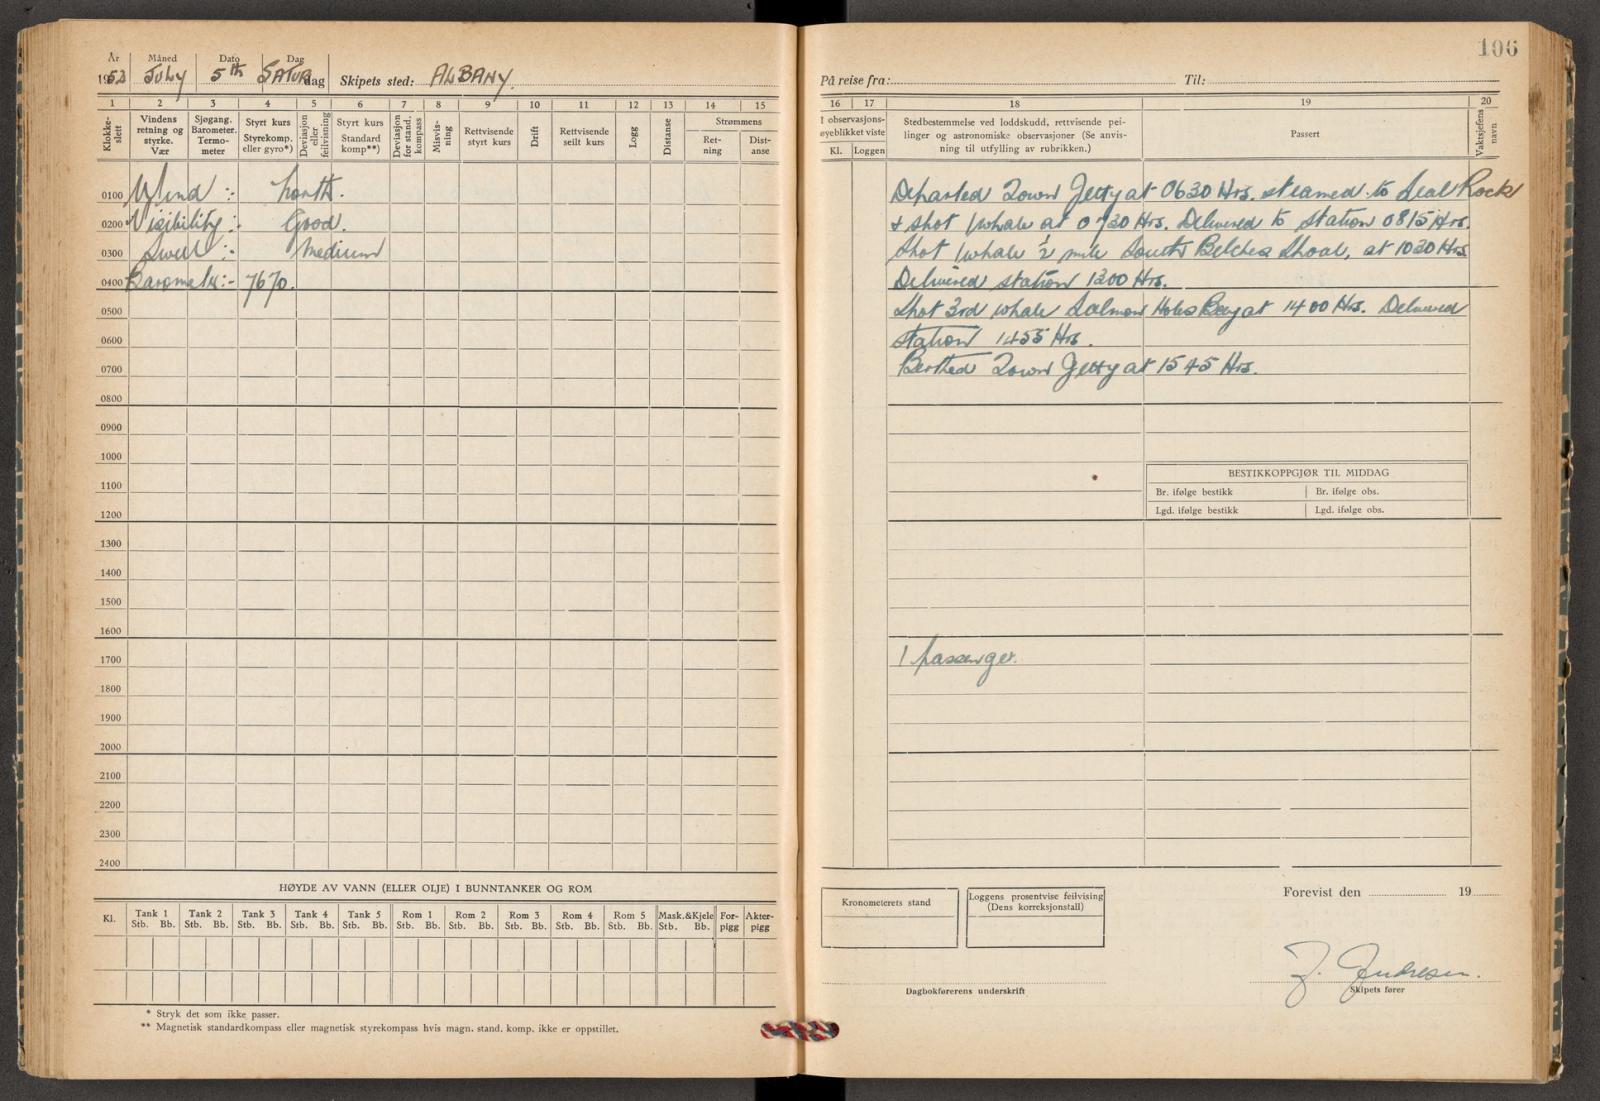 106
År Måned Dato Dag
1952 July 5th Saturdag Skipets sted: ALBANY.
På reise fra: Til:
1 2 3 4 5 6 7 8 9 10 11 12 13 14 15
16 17 18 19 20
Klokke-slett
Vindens retning og styrke. Vær
Sjøgang. Barometer. Termo-meter
Styrt kurs Styrekomp. eller gyro*)
Deviasjon eller feilvisning
Styrt kurs Standard komp**)
Deviasjon for stand. kompass
Misvis-ning
Rettvisende styrt kurs
Drift
Rettvisende seilt kurs
Logg
Distanse
Strømmens
Ret-ning
Dist-anse
I observasjons-øyeblikket viste
Kl. Loggen
Stedbestemmelse ved loddskudd, rettvisende pei-
linger og astronomiske observasjoner (Se anvis-
ning til utfylling av rubrikken.)
Passert
Vaktsjefens navn
0100 Wind :- North.
0200 Visibility :- Good.
0300 Swell :- Medium
0400 Barometer :- 7670.
0500
0600
0700
0800
0900
1000
1100
1200
1300
1400
1500
1600
1700
1800
1900
2000
2100
2200
2300
2400
Departed Town Jetty at 0630 Hrs. steamed to Seal Rock
& shot 1 whale at 0730 Hrs. Delivered to station 0815 Hrs.
Shot 1 whale ½ mile South Belches Shoal, at 1030 Hrs
Delivered station 1300 Hrs.
Shot 3rd whale Salmon Holes Bay at 1400 Hrs. Delivered
station 1455 Hrs.
Berthed Town Jetty at 1545 Hrs.
BESTIKKOPPGJØR TIL MIDDAG
Br. ifølge bestikk Br. ifølge obs.
Lgd. ifølge bestikk Lgd. ifølge obs.
1 passenger.
HØYDE AV VANN (ELLER OLJE) I BUNNTANKER OG ROM
Kl. Tank 1 Tank 2 Tank 3 Tank 4 Tank 5 Rom 1 Rom 2 Rom 3 Rom 4 Rom 5 Mask.&Kjele For-pigg Akter-pigg
Stb. Bb. Stb. Bb. Stb. Bb. Stb. Bb. Stb. Bb. Stb. Bb. Stb. Bb. Stb. Bb. Stb. Bb. Stb. Bb. Stb. Bb.
* Stryk det som ikke passer.
** Magnetisk standardkompass eller magnetisk styrekompass hvis magn. stand. komp. ikke er oppstillet.
Kronometerets stand
Loggens prosentvise feilvisning
(Dens korreksjonstall)
Forevist den 19
Dagbokførerens underskrift
Skipets fører